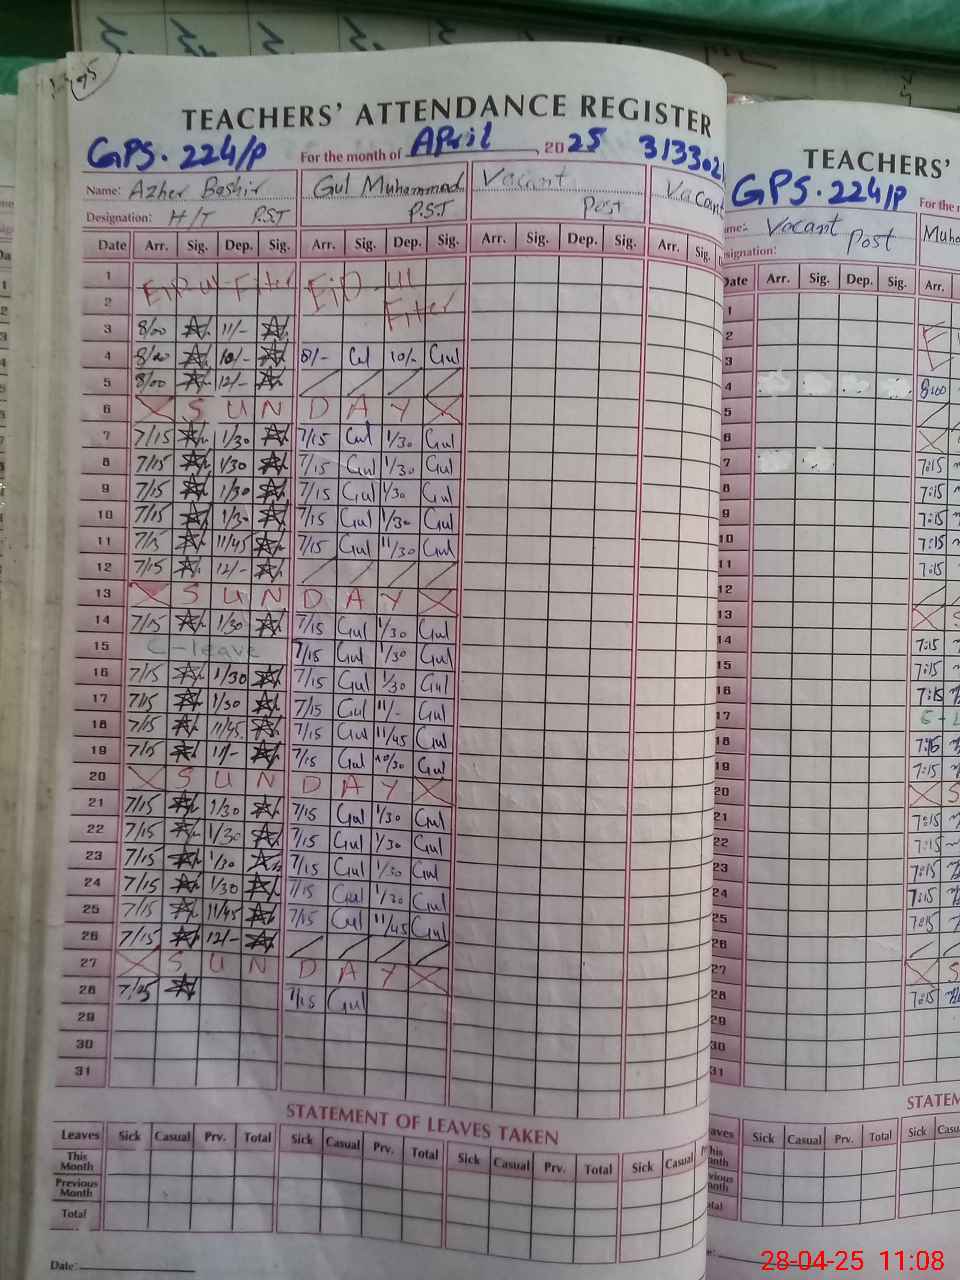 95
TEACHERS' ATTENDANCE REGISTER
GPS. 224/P For the month of April, 20 25
Name: Azher Bashir Gul Muhammad Vacant Vacant
Designation: H/T P.S.T P.S.T Post
Date Arr. Sig. Dep. Sig. Arr. Sig. Dep. Sig. Arr. Sig. Dep. Sig. Arr. Sig.
1 EiD-ul-Fiter EiD-ul
2 Fiter
3 8/00 11/-
4 8/00 10/- 8/- Gul 10/- Gul
5 8/00 12/-
6 S U N D A Y
7 7/15 1/30 7/15 Gul 1/30 Gul
8 7/15 1/30 7/15 Gul 1/30 Gul
9 7/15 1/30 7/15 Gul 1/30 Gul
10 7/15 1/30 7/15 Gul 1/30 Gul
11 7/15 11/45 7/15 Gul 11/30 Gul
12 7/15 12/-
13 S U N D A Y
14 7/15 1/30 7/15 Gul 1/30 Gul
15 C-leave 7/15 Gul 1/30 Gul
16 7/15 1/30 7/15 Gul 1/30 Gul
17 7/15 1/30 7/15 Gul 11/- Gul
18 7/15 11/45 7/15 Gul 11/45 Gul
19 7/15 11/- 7/15 Gul 10/30 Gul
20 S U N D A Y
21 7/15 1/30 7/15 Gul 1/30 Gul
22 7/15 1/30 7/15 Gul 1/30 Gul
23 7/15 1/30 7/15 Gul 1/30 Gul
24 7/15 1/30 7/15 Gul 1/30 Gul
25 7/15 11/45 7/15 Gul 11/45 Gul
26 7/15 12/-
27 S U N D A Y
28 7/15 7/15 Gul
29
30
31
STATEMENT OF LEAVES TAKEN
Leaves Sick Casual Prv. Total Sick Casual Prv. Total Sick Casual Prv. Total Sick Casual
This Month
Previous Month
Total
Date:
TEACHERS'
GPS. 224/P For the
Vacant Post
Date Arr. Sig. Dep. Sig. Arr.
1
2
3
4 8:00
5
6
7 7:15
8 7:15
9 7:15
10 7:15
11 7:15
12
13
14 7:15
15 7:15
16 7:15
17
18 7:15
19 7:15
20 S
21 7:15
22 7:15
23 7:15
24 7:15
25 7:15
26
27 S
28 7:15
29
30
31
Sick Casual Prv. Total Sick
28-04-25 11:08